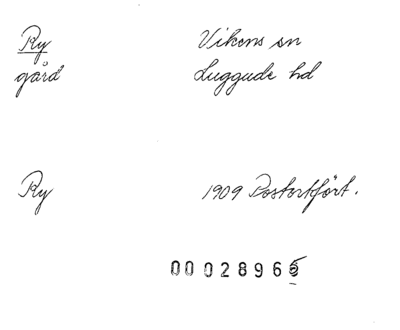 Ry Vikens sn
gård Luggude hd
Ry 1909 Postortfört.
0002896